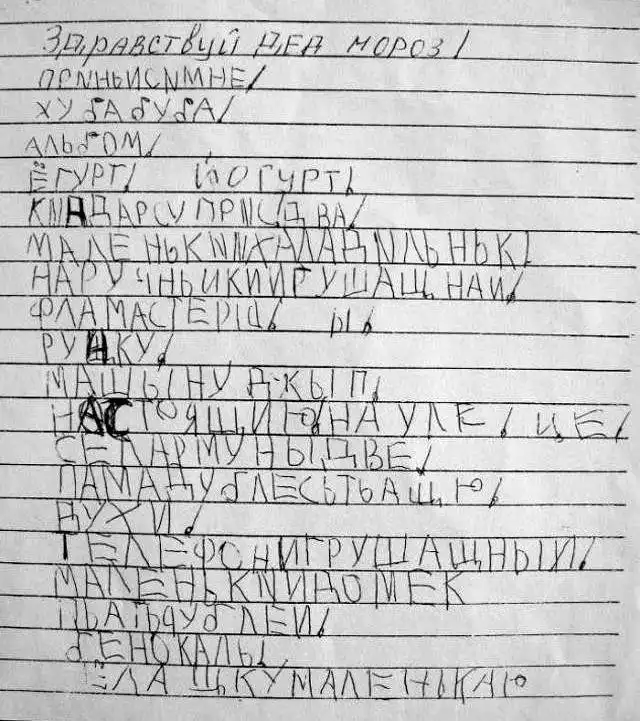 ЗДРАВСТВУЙ ДЕД МОРОЗ!
ПРИНЬИСИМНЕ!
ХУБАБУБА!
АЛЬБОМ!
ЁГУРТ! ЙОГУРТ!
КИНДАРСУПРИСДВА!
МАЛЕНЬКИИХАЛАДИЛЬНЬК!
НАРУЧНЬИКИИГРУШАЩНАИ!
ФЛАМАСТЕРЫ! Ы!
РУЧКУ!
МАШЫНУ ДЖЫП!
НАСТОЯЩИЮ!НА УЛЕ! ЦЕ!
СЕЛАРМУНЫДВЕ!
ПАМАДУБЛЕСЬТЬАЩЮ!
ДУХИ!
ТЕЛЕФОНИГРУШАЩНЫЙ!
МАЛЕНЬКИИДОМЕК
БЕНОКАЛЬ!
ЁЛАЩЬКУМАЛЕНЬКАЮ